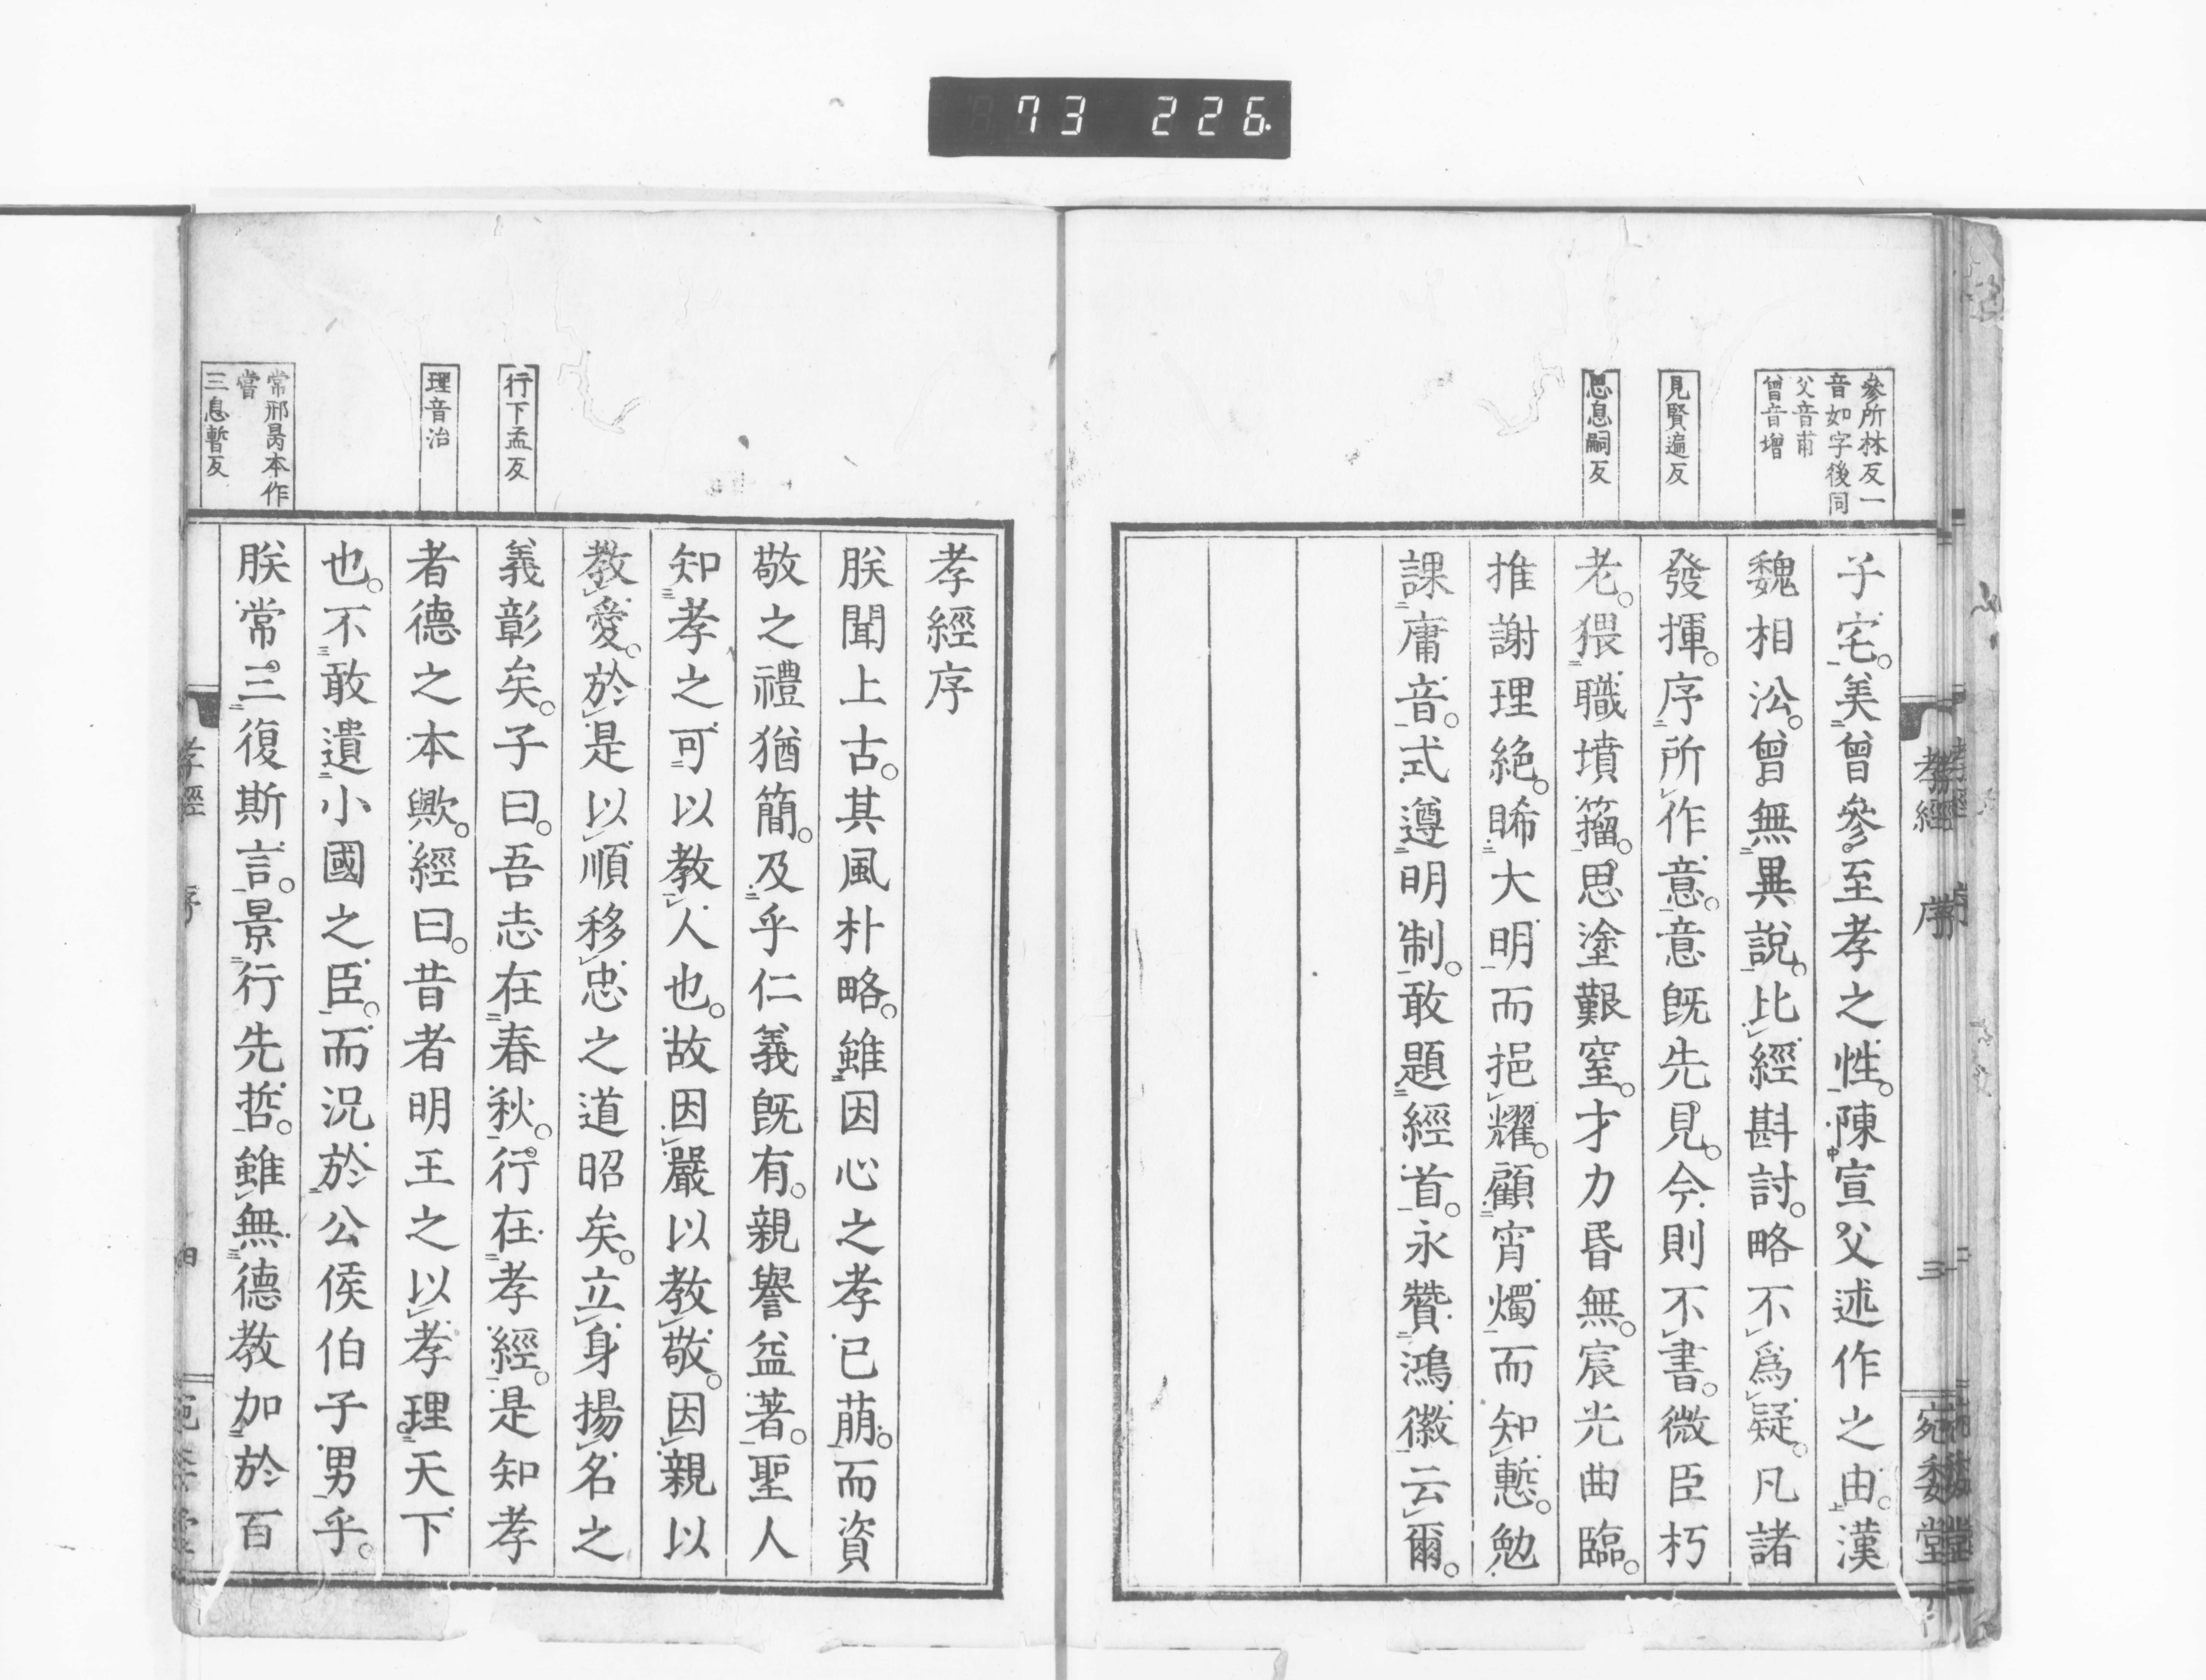 73 226.
參所林反一
音如字後同
父音甫
曾音增
見賢遍反
思息嗣反
子宅。美曾參至孝之性。陳宣父述作之由。漢
魏相㳂。曾無異說。比經斟討。略不爲疑。凡諸
發揮。序所作意。意旣先見。今則不書。微臣朽
老。猥職墳籀。思塗艱窒。才力昬無。宸光曲臨。
推謝理絶。晞大明而挹耀。顧宵燭而知慙。勉
課庸音。式遵明制。敢題經首。永贊鴻徽云爾。
孝經
序
三
宛委堂
行下孟反
理音治
常邢昺本作
嘗
三息暫反
孝經序
朕聞上古。其風朴略。雖因心之孝已萠。而資
敬之禮猶簡。及乎仁義旣有。親譽益著。聖人
知孝之可以教人也。故因嚴以教敬。因親以
教愛。於是以順移忠之道昭矣。立身揚名之
義彰矣。子曰。吾志在春秋。行在孝經。是知孝
者德之本歟。經曰。昔者明王之以孝理天下
也。不敢遺小國之臣。而況於公侯伯子男乎。
朕常三復斯言。景行先哲。雖無德教加於百
孝經